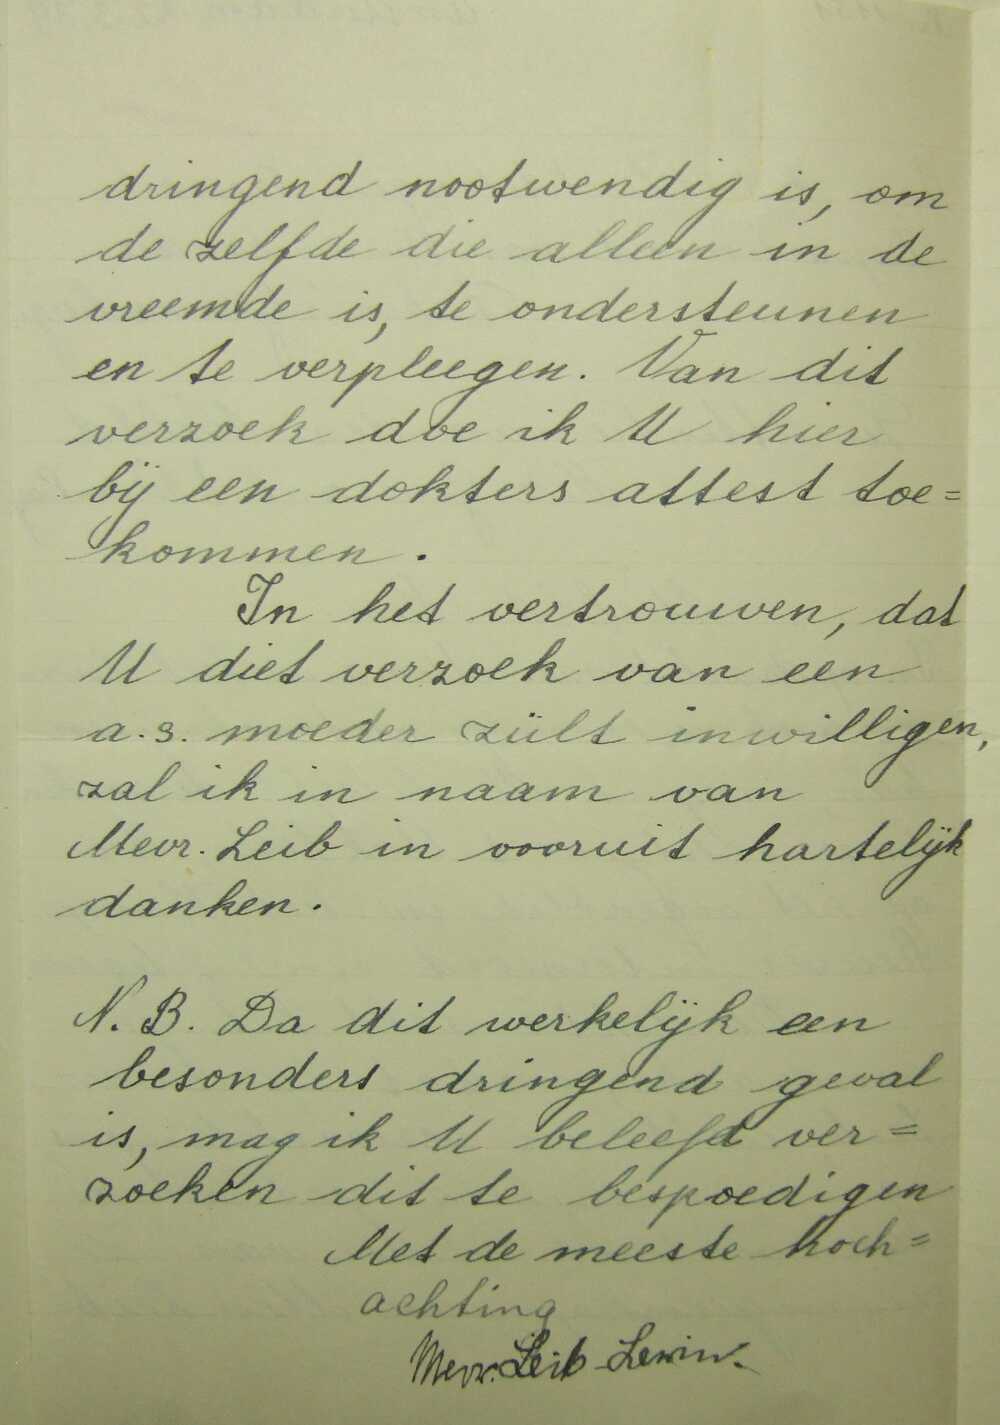 dringend nootwendig is, om
de zelfde die alleen in de
vreemde is, te ondersteunen
en te verpleegen. Van dit
verzoek doe ik U hier
bij een dokters attest toe=
kommen.
In het vertrouwen, dat
U diet verzoek van een
a.s. moeder zült inwilligen,
zal ik in naam van
Mevr. Leib in vooruit hartelijk
danken.
N.B. Da dit werkelijk een
besonders dringend geval
is, mag ik U beleefd ver=
zoeken dit te bespoedigen
Met de meeste hoch=
achting
Mevr. Leib Lewin.